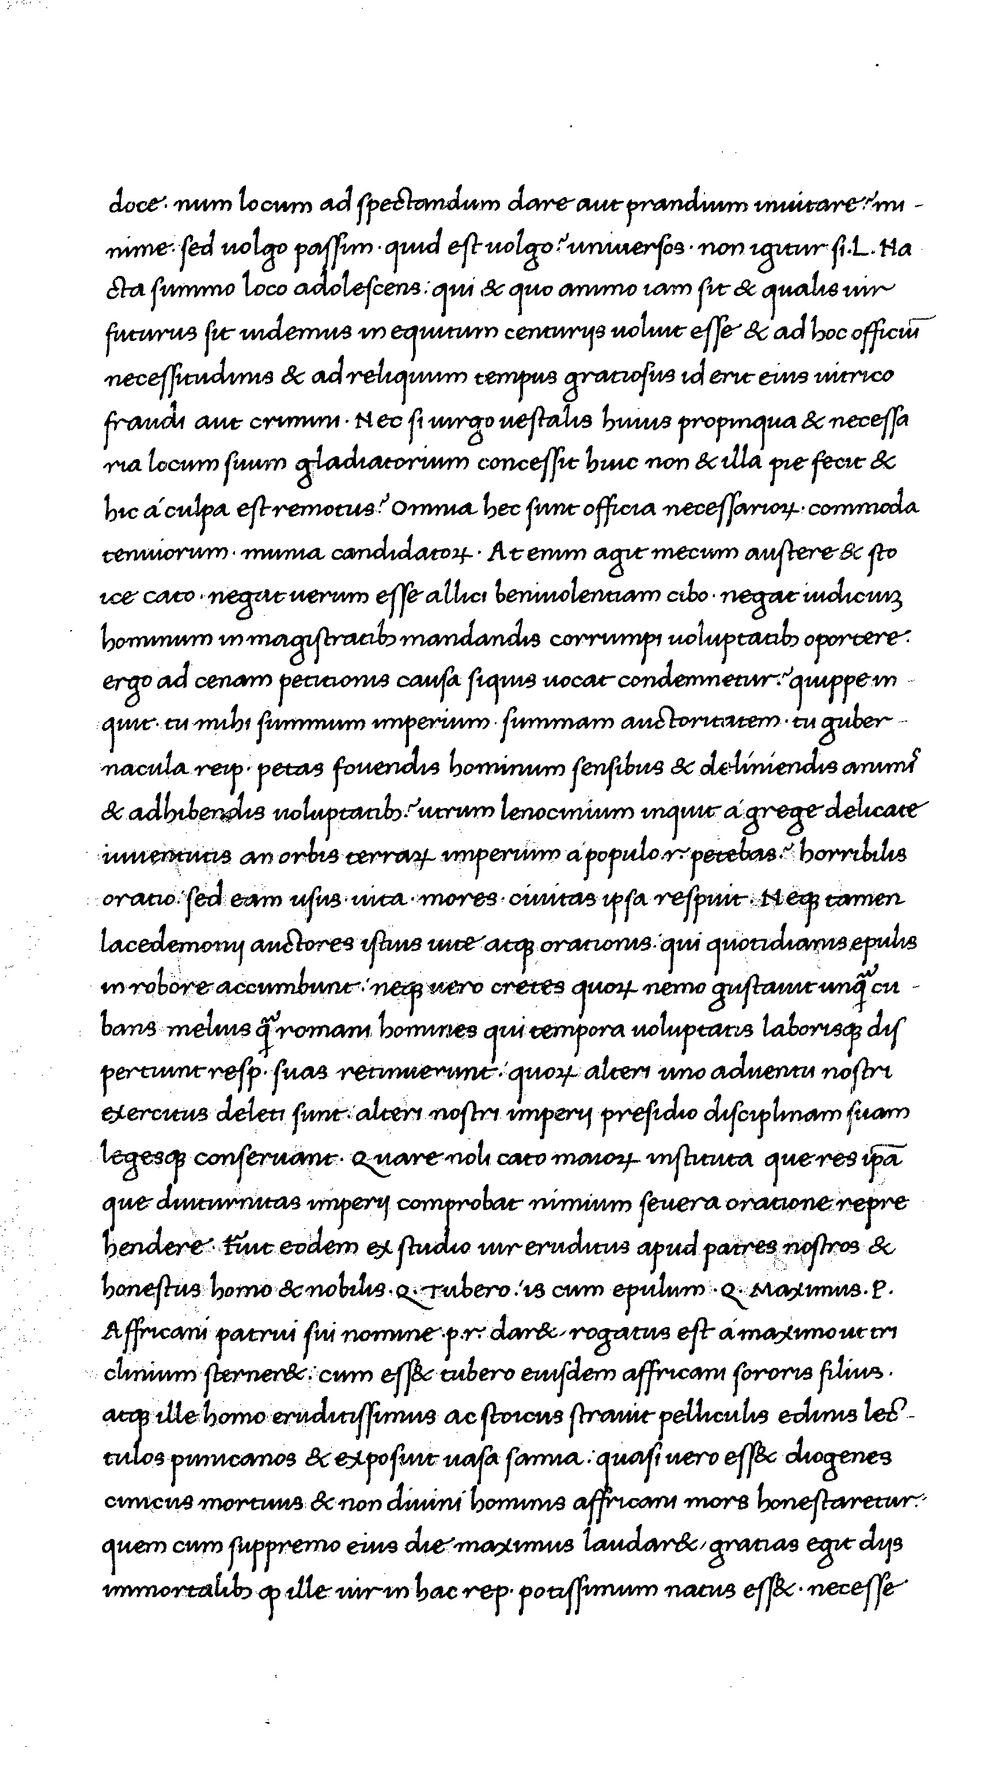 doce· num locum ad spectandum dare aut prandium inuitare? mi-
nime· sed uolgo passim· quid est uolgo? uniuersos· non igitur si·L·Na
cta summo loco adolescens: qui & quo animo iam sit & qualis uir
futurus sit uidemus in equitum centurijs uoluit esse & ad hoc officiū
necessitudinis & ad reliquum tempus gratiosus id erit eius uitrico
fraudi aut crimini· Nec si uirgo uestalis huius propinqua & necessa
ria locum suum gladiatorium concessit huic non & illa pie fecit &
hic á culpa est remotus? Omnia hec sunt officia necessarioꝝ· commoda
tenuiorum· munia candidatoꝝ· At enim agit mecum austere & sto
ice cato· negat uerum esse allici beniuolentiam cibo· negat iudiciuꝫ
hominum in magistratibꝫ mandandis corrumpi uoluptatibꝫ oportere·
ergo ad cenam petitionis causa siquis uocat condemnetur? quippe in-
quit· tu mihi summum imperium· summam auctoritatem· tu guber-
nacula reip· petas fouendis hominum sensibus & deliniendis animis
& adhibendis uoluptatibꝫ? utrum lenocinium inquit á grege delicate
iuuentutis an orbis terraꝝ imperium á populo·r· petebas? horribilis
oratio: sed eam usus· uita· mores· ciuitas ipsa respuit· Neqꝫ tamen
lacedemonij auctores istius uite atqꝫ orationis: qui quotidianis epulis
in robore accumbunt: neqꝫ uero cretes quoꝝ nemo gustauit unq̄ cu-
bans melius q̄ romani homines qui tempora uoluptatis laborisqꝫ dis
pertiunt resp· suas retinuerunt: quoꝝ alteri uno aduentu nostri
exercitus deleti sunt: alteri nostri imperij presidio disciplinam suam
legesqꝫ conseruant· Quare noli cato maioꝝ instituta que res ip̄a
que diuturnitas imperij comprobat nimium seuera oratione repre
hendere· Fuit eodem ex studio uir eruditus apud patres nostros &
honestus homo & nobilis· Q· Tubero: is cum epulum· Q· Maximus· P·
Affricani patrui sui nomine·p·r· dar&, rogatus est á maximo ut tri
clinium sterner&: cum ess& tubero eiusdem affricani sororis filius·
atqꝫ ille homo eruditissimus ac stoicus strauit pelliculis edinis lec-
tulos punicanos & exposuit uasa samia: quasi uero ess& diogenes
cinicus mortuus & non diuini hominis affricani mors honestaretur:
quem cum suppremo eius die maximus laudar&, gratias egit dijs
immortalibꝫ ꝙ ille uir in hac rep· potissimum natus ess&· necesse